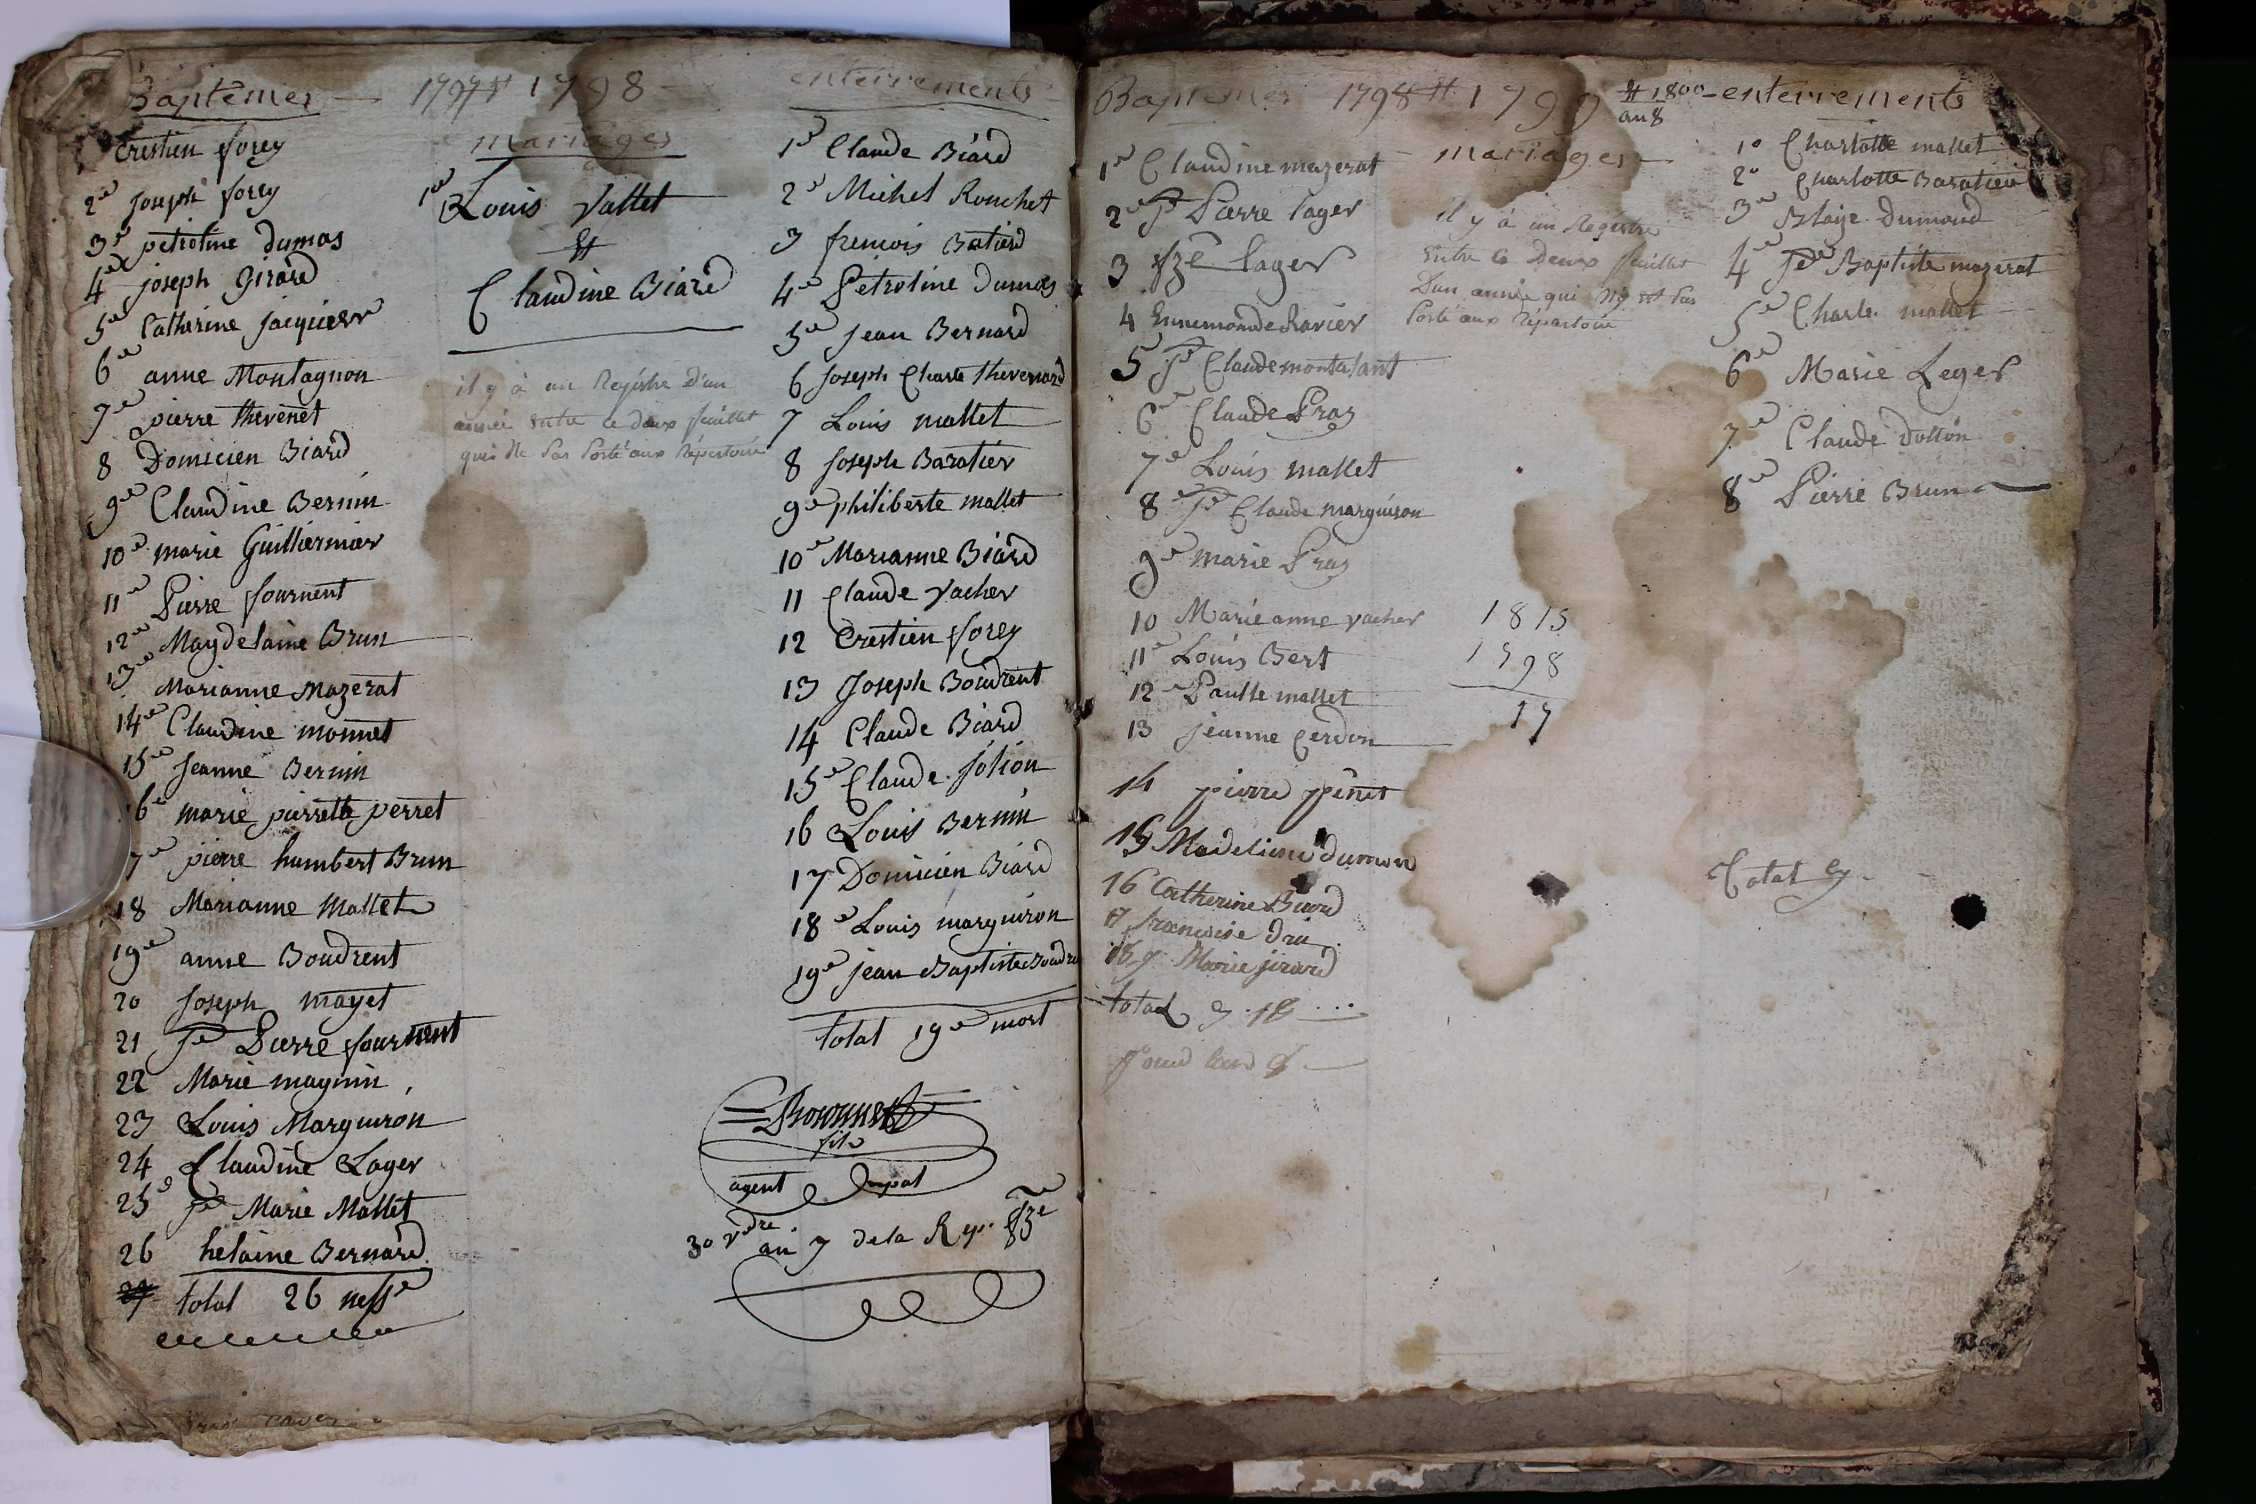 Baptêmes — 1797 et 1798
Crestien forey
2e Joseph forey
3e petroline Dumas
4e joseph Girard
5e Catherine jacquier
6e anne Montagnon
7e pierre thevenet
8 Domicien Biard
9e Claudine Bernin
10e marie Guilliermier
11e Pierre fournent
12e Magdelaine Brun
13e Marianne Mazerat
14e Claudine monnet
15e Jeanne Bernin
16e marie pierrette perret
7e pierre humbert Brun
18 Marianne Mallet
19e anne Boudrent
20 Joseph mayet
21 Je Pierre fournent
22 Marie magnin
23 Louis Marguiron
24 Claudine Lager
25e Je Marie Mallet
26 helaine Bernard
27 total 26 nesse
mariages
1er Louis Vallet
et
Claudine Biard
il y à un Registre D'un
année entre ce deux feuillet
qui Ne Pas Porté aux Répertoire
enterrements
1e Claude Biard
2e Michel Rouchet
3 frencois Batierd
4e Petroline Dumas
5e Jean Bernard
6 Joseph Charle thevenard
7 Louis mallet
8 Joseph Baratier
9e philiberte mallet
10e Marianne Biard
11 Claude vacher
12 Crestien forey
13 Joseph Boudrent
14 Claude Biard
15e Claude Jolion
16 Louis Bernin
17 Domicien Biard
18e Louis marguiron
19e jean Baptiste Boudre
total 19e mort
fils
agent mpal
30 vdre an 7 de la Rep. fze
Baptêmes 1798 et 1799 et 1800
an 8
1e Claudine mazerat
2e Je Pierre lager
3 fze lager
4 Ennemonde Ravier
5 Je Claude montasant
6e Claude Pras
7e Louis mallet
8e Je Claude marguiron
9e marie Pras
10 Marie anne vacher
11e Louis Bert
12 Paulle mallet
13 jeanne Cerdon
14 pierre penet
15 Madeleine dumon
16 Catherine Biard
17 francoise dru
18 Marie jirard
total 18
mariages
il y à un Registre
Entre ce Deux feuillet
D'un année qui N'y est Pas
Porté aux Répertoire
1815
1798
17
enterrements
1o Charlotte mallet
2o Charlotte Baratier
3e Blaije Dumond
4e Je Baptiste mazerat
5e Charle mallet
6e Marie Leger
7e Claude dollon
8e Pierre Brun
Total